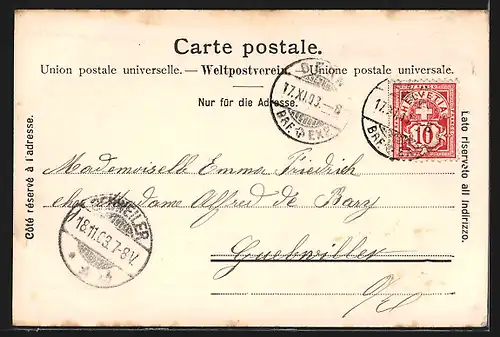 Carte postale.
Union postale universelle. — Weltpostverein. — Unione postale universale.
Nur für die Adresse.
Côté réservé à l'adresse.
Lato riservato all indirizzo.
17.XI.03.–8
BRF. EXP.
17.X
BRF.
HELVETIA
10
Mademoiselle Emma Friedrich
chez Madame Alfred de Bary
Guebwiller
o/El
GEBWEILER
18.11.03.7-8V.